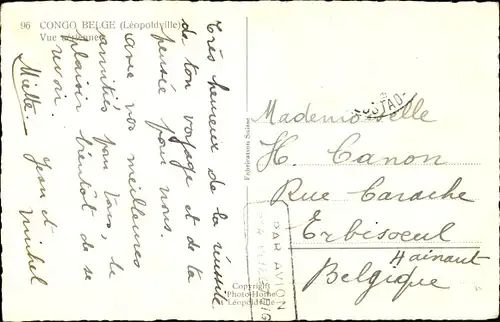 96 CONGO BELGE (Léopoldville)
Vue aérienne
Très heureux de la réussite
de ton voyage et de ta
pensée pour nous.
avec nos meilleures
amitiés pour vous, le
plaisir bientôt de se
revoir.
Miette Jean et
Michel
Fabrication Suisse
Mademoiselle
H. Canon
Rue Carache
Erbisoeul
Hainaut
Belgique
PAR AVION
Copyright
Photo-Home
Léopoldville